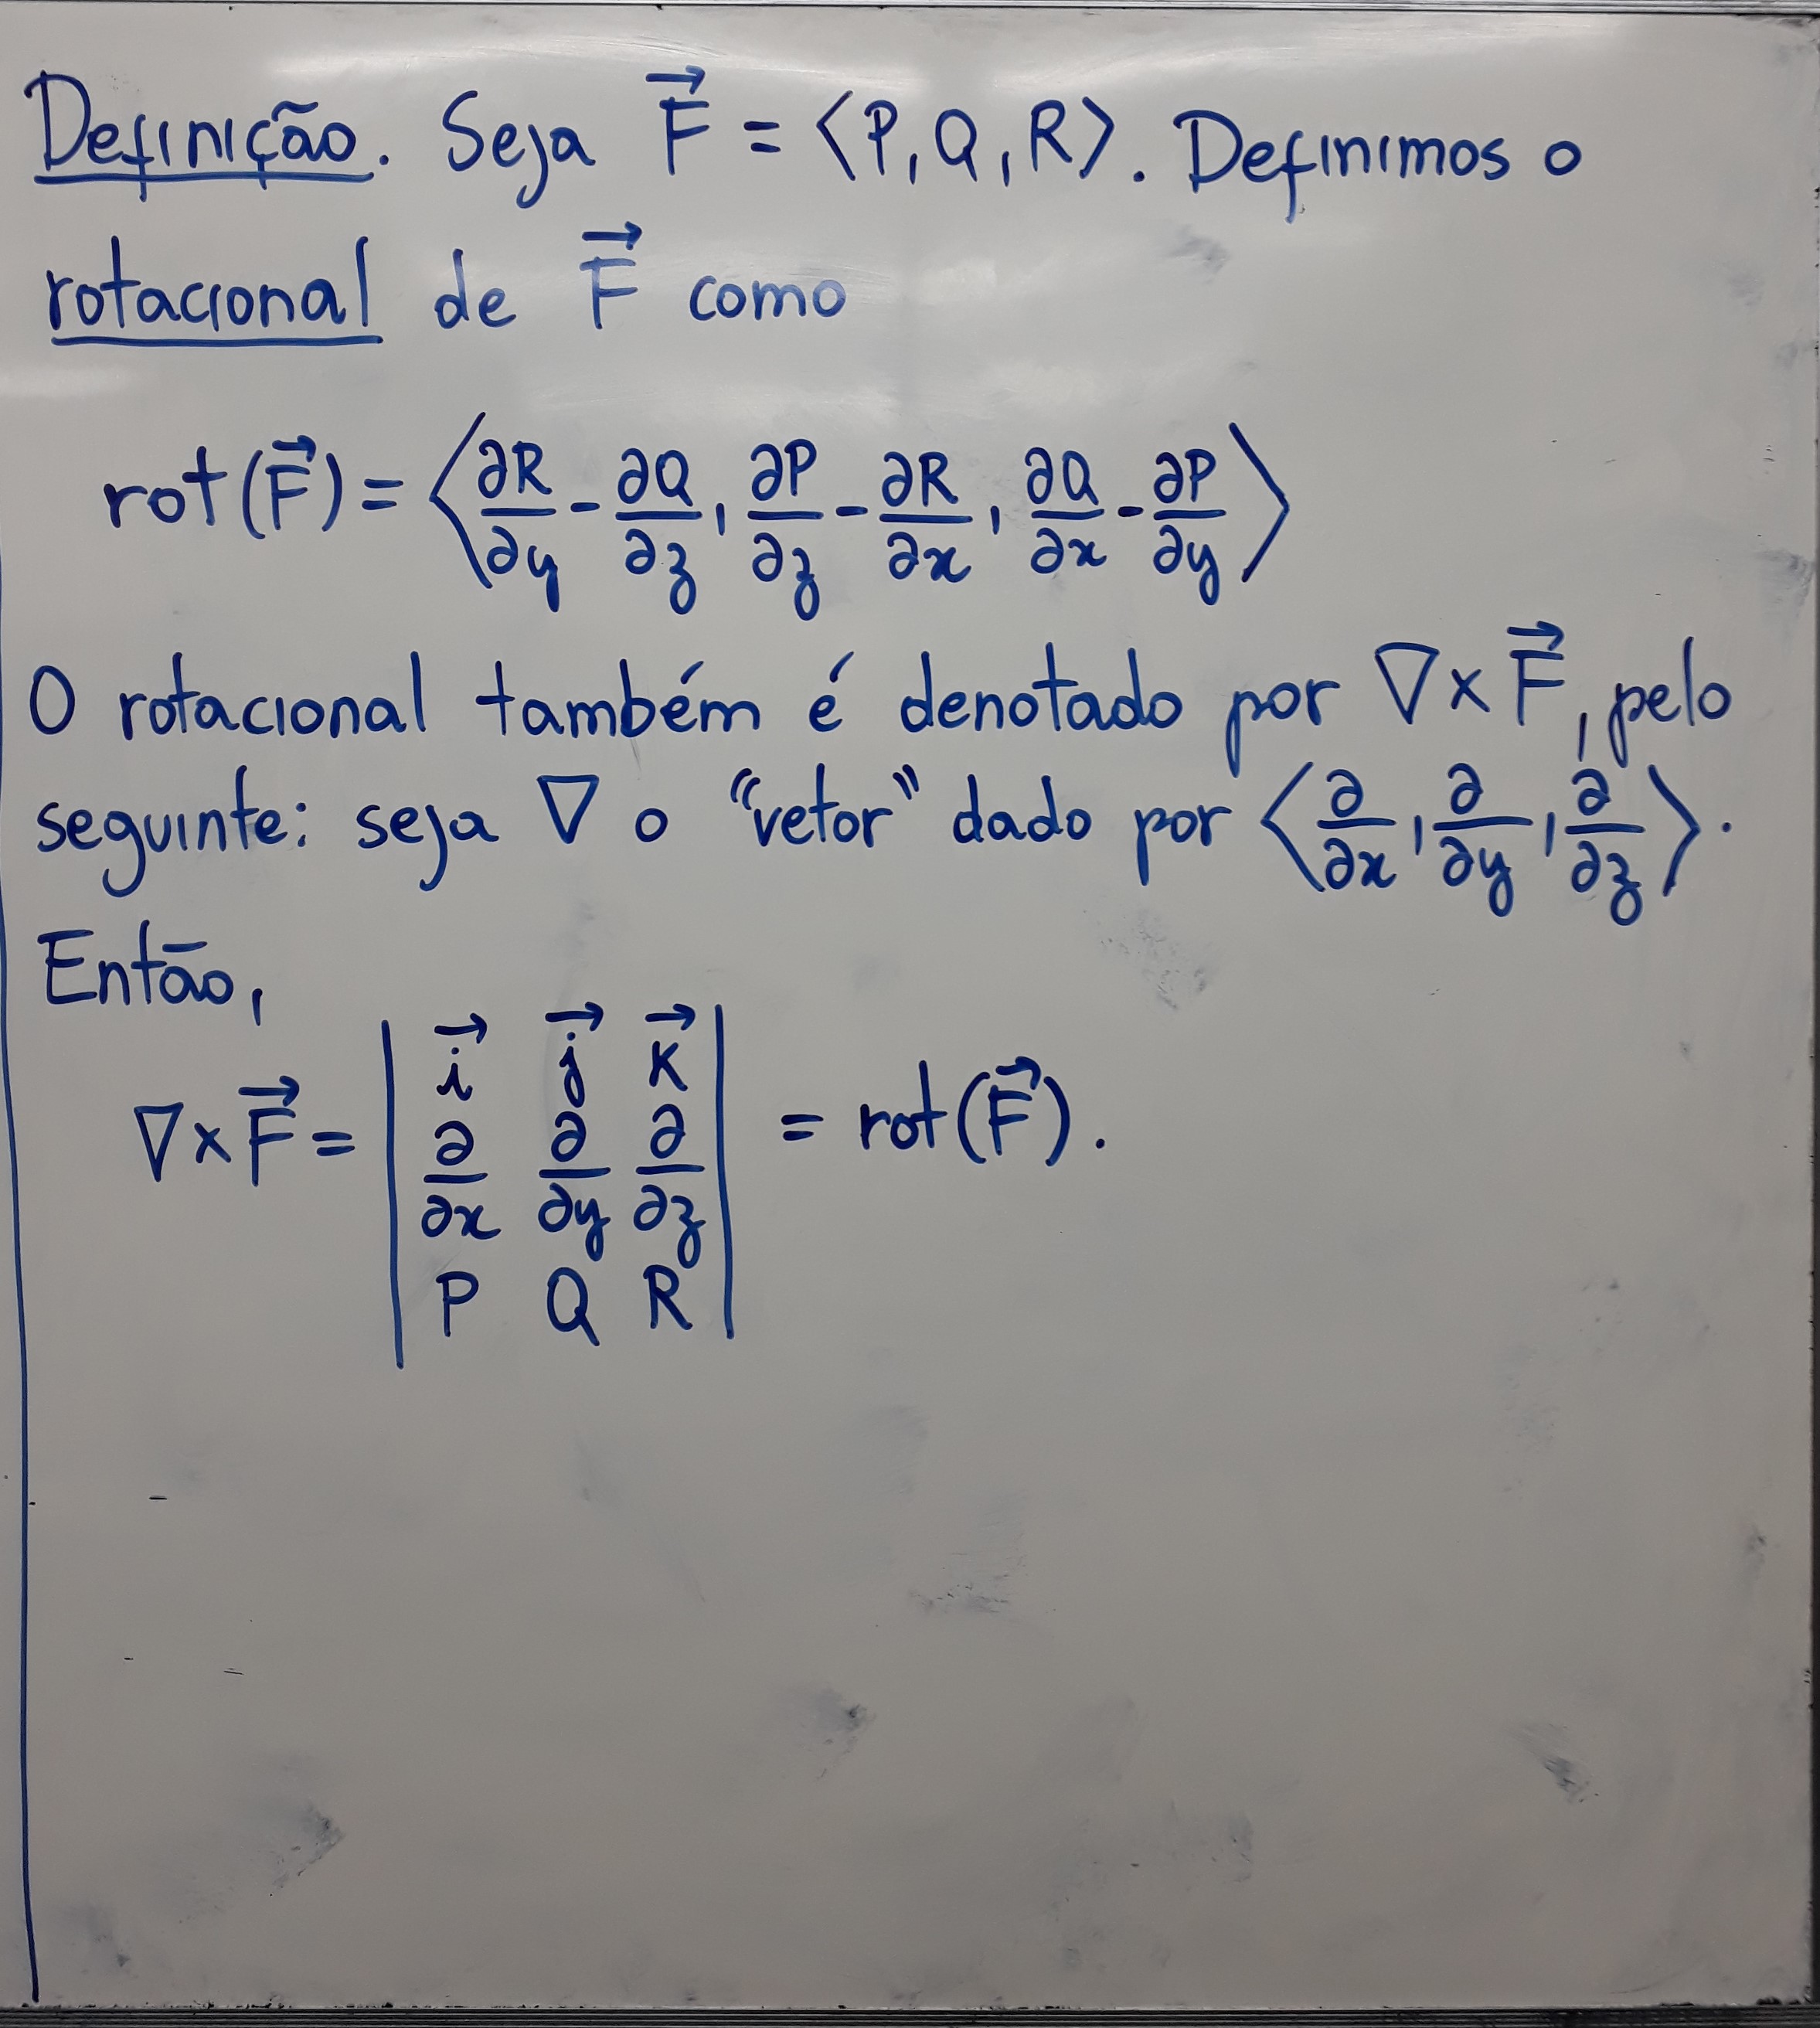 Definição. Seja $\vec{F} = \langle P, Q, R \rangle$. Definimos o
rotacional de $\vec{F}$ como
$\text{rot}(\vec{F}) = \left\langle \frac{\partial R}{\partial y} - \frac{\partial Q}{\partial z}, \frac{\partial P}{\partial z} - \frac{\partial R}{\partial x}, \frac{\partial Q}{\partial x} - \frac{\partial P}{\partial y} \right\rangle$
O rotacional também é denotado por $\nabla \times \vec{F}$, pelo
seguinte: seja $\nabla$ o "vetor" dado por $\left\langle \frac{\partial}{\partial x}, \frac{\partial}{\partial y}, \frac{\partial}{\partial z} \right\rangle$.
Então,
$\nabla \times \vec{F} = \begin{vmatrix} \vec{i} & \vec{j} & \vec{k} \\ \frac{\partial}{\partial x} & \frac{\partial}{\partial y} & \frac{\partial}{\partial z} \\ P & Q & R \end{vmatrix} = \text{rot}(\vec{F})$.